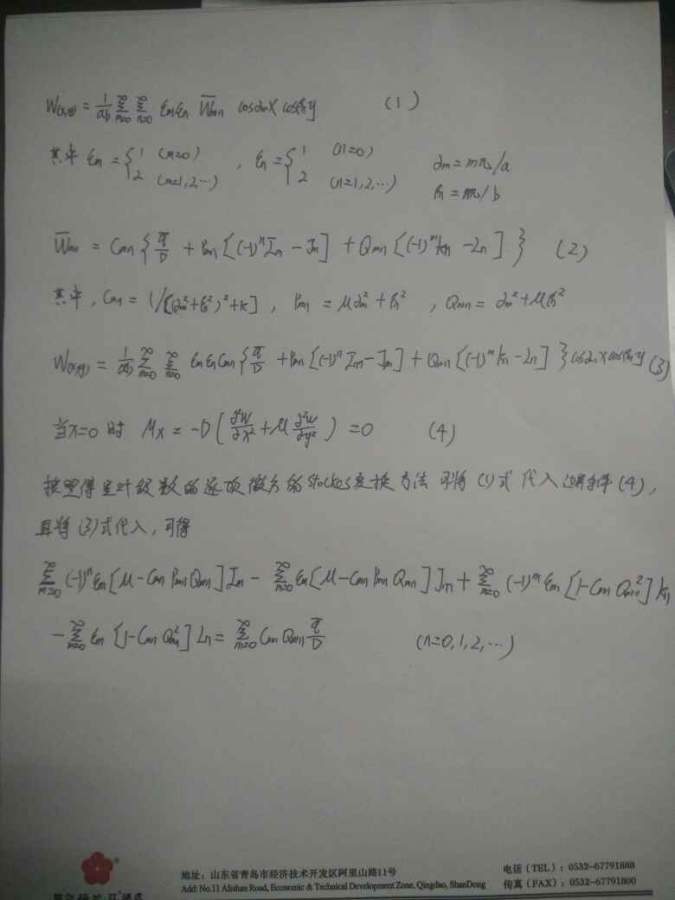 W(x,y) = 1/ab ∑_{m=0}^{∞} ∑_{n=0}^{∞} εmεn W̄mn cosαmx cosβny (1)
其中 εm = { 1 (m=0) 2 (m=1,2,…) , εn = { 1 (n=0) 2 (n=1,2,…) αm = mπ/a βn = nπ/b
W̄mn = Cmn { q̄/D + Pmn [(-1)^n Im - Jm] + Qmn [(-1)^m Kn - Ln] } (2)
其中, Cmn = 1/[(αm²+βn²)²+k] , Pmn = μαm²+βn² , Qmn = αm²+μβn²
W(x,y) = 1/ab ∑_{m=0}^{∞} ∑_{n=0}^{∞} εmεnCmn { q̄/D + Pmn [(-1)^n Im - Jm] + Qmn [(-1)^m Kn - Ln] } cosαmx cosβny (3)
当x=0时 Mx = -D ( ∂²W/∂x² + μ ∂²W/∂y² ) = 0 (4)
按照傅里叶级数的逐项微分的Stockes变换方法 可将(1)式代入边界条件(4),
且将(3)式代入,可得
∑_{m=0}^{∞} (-1)^n εm [μ - Cmn Pmn Qmn] Im - ∑_{m=0}^{∞} εm [μ - Cmn Pmn Qmn] Jm + ∑_{m=0}^{∞} (-1)^m εm [1 - Cmn Qmn²] Kn
- ∑_{m=0}^{∞} εm [1 - Cmn Qmn²] Ln = ∑_{m=0}^{∞} Cmn Qmn q̄/D (n=0,1,2,…)
地址:山东省青岛市经济技术开发区阿里山路11号 电话(TEL):0532-67791888
Add: No.11 Alishan Road, Economic & Technical Development Zone, Qingdao, ShanDong 传真(FAX):0532-67791800